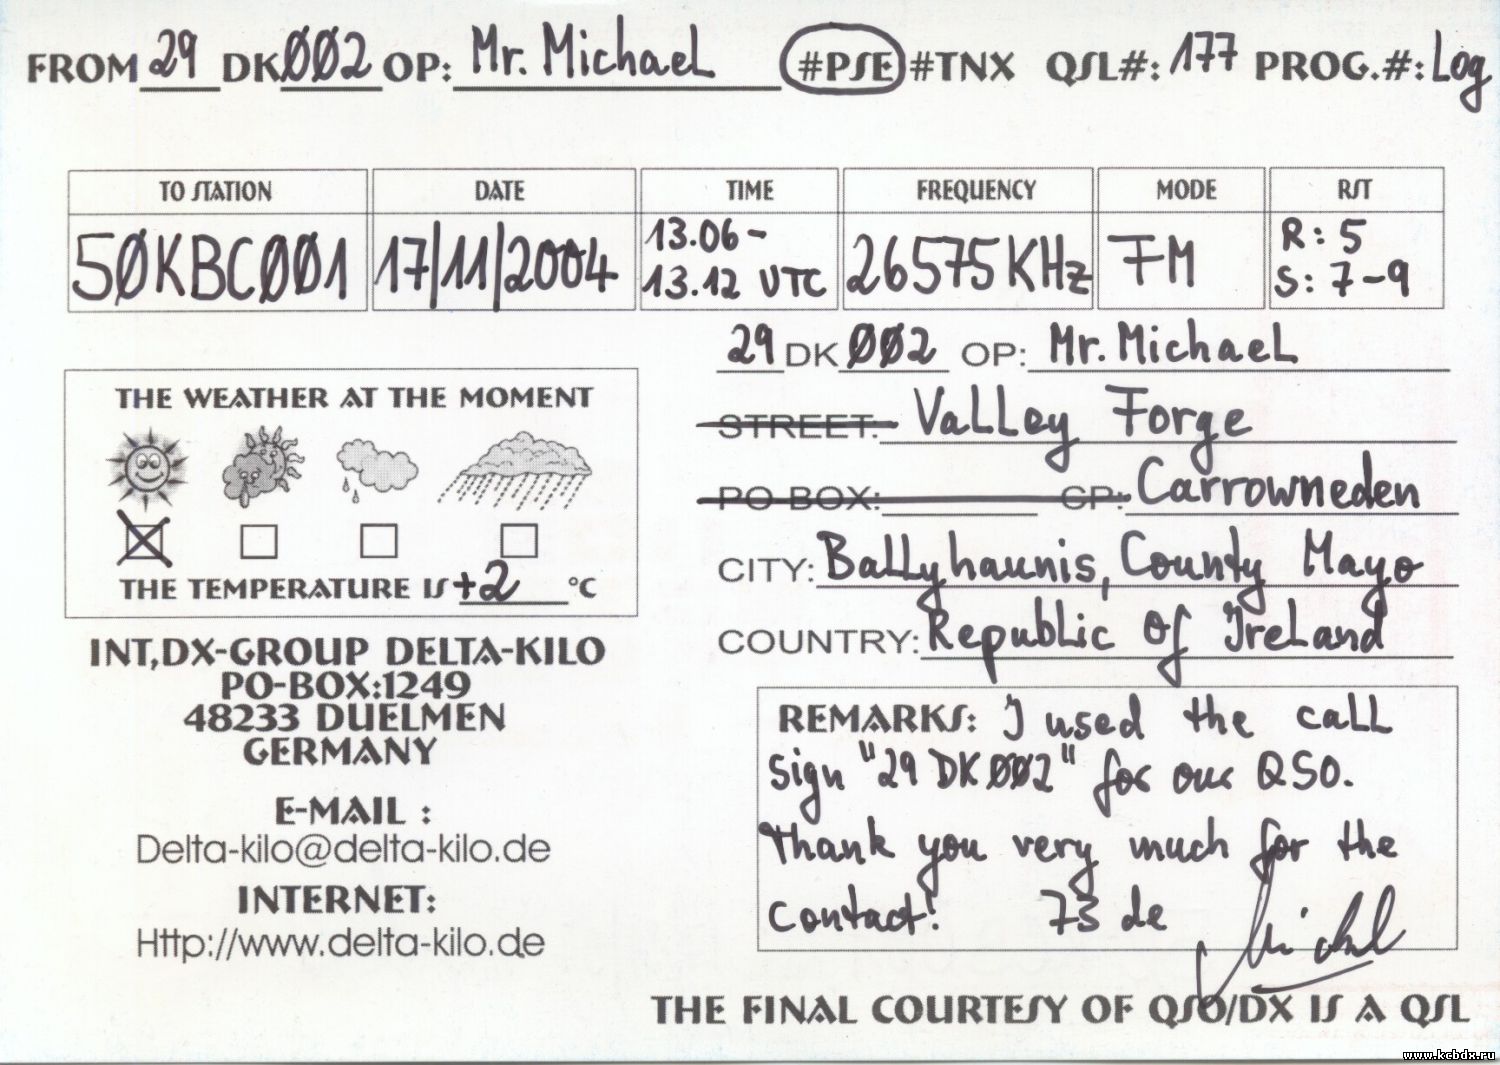 FROM 29 DKØØ2 OP: Mr. Michael #PSE #TNX QSL#: 177 PROG.#: Log
TO STATION DATE TIME FREQUENCY MODE RST
5ØKBCØØ1 17/11/2004 13.06 - 13.12 UTC 26575 KHz FM R: 5 S: 7-9
29 DK ØØ2 OP: Mr. Michael
STREET: Valley Forge
PO-BOX: CP: Carrowneden
CITY: Ballyhaunis, County Mayo
COUNTRY: Republic of Ireland
THE WEATHER AT THE MOMENT
THE TEMPERATURE IS +2 °C
INT,DX-GROUP DELTA-KILO
PO-BOX:1249
48233 DUELMEN
GERMANY
E-MAIL :
Delta-kilo@delta-kilo.de
INTERNET:
Http://www.delta-kilo.de
REMARKS: I used the call
sign "29 DK ØØ2" for our QSO.
Thank you very much for the
contact! 73 de Michael
THE FINAL COURTESY OF QSO/DX IS A QSL
www.kcbdx.ru